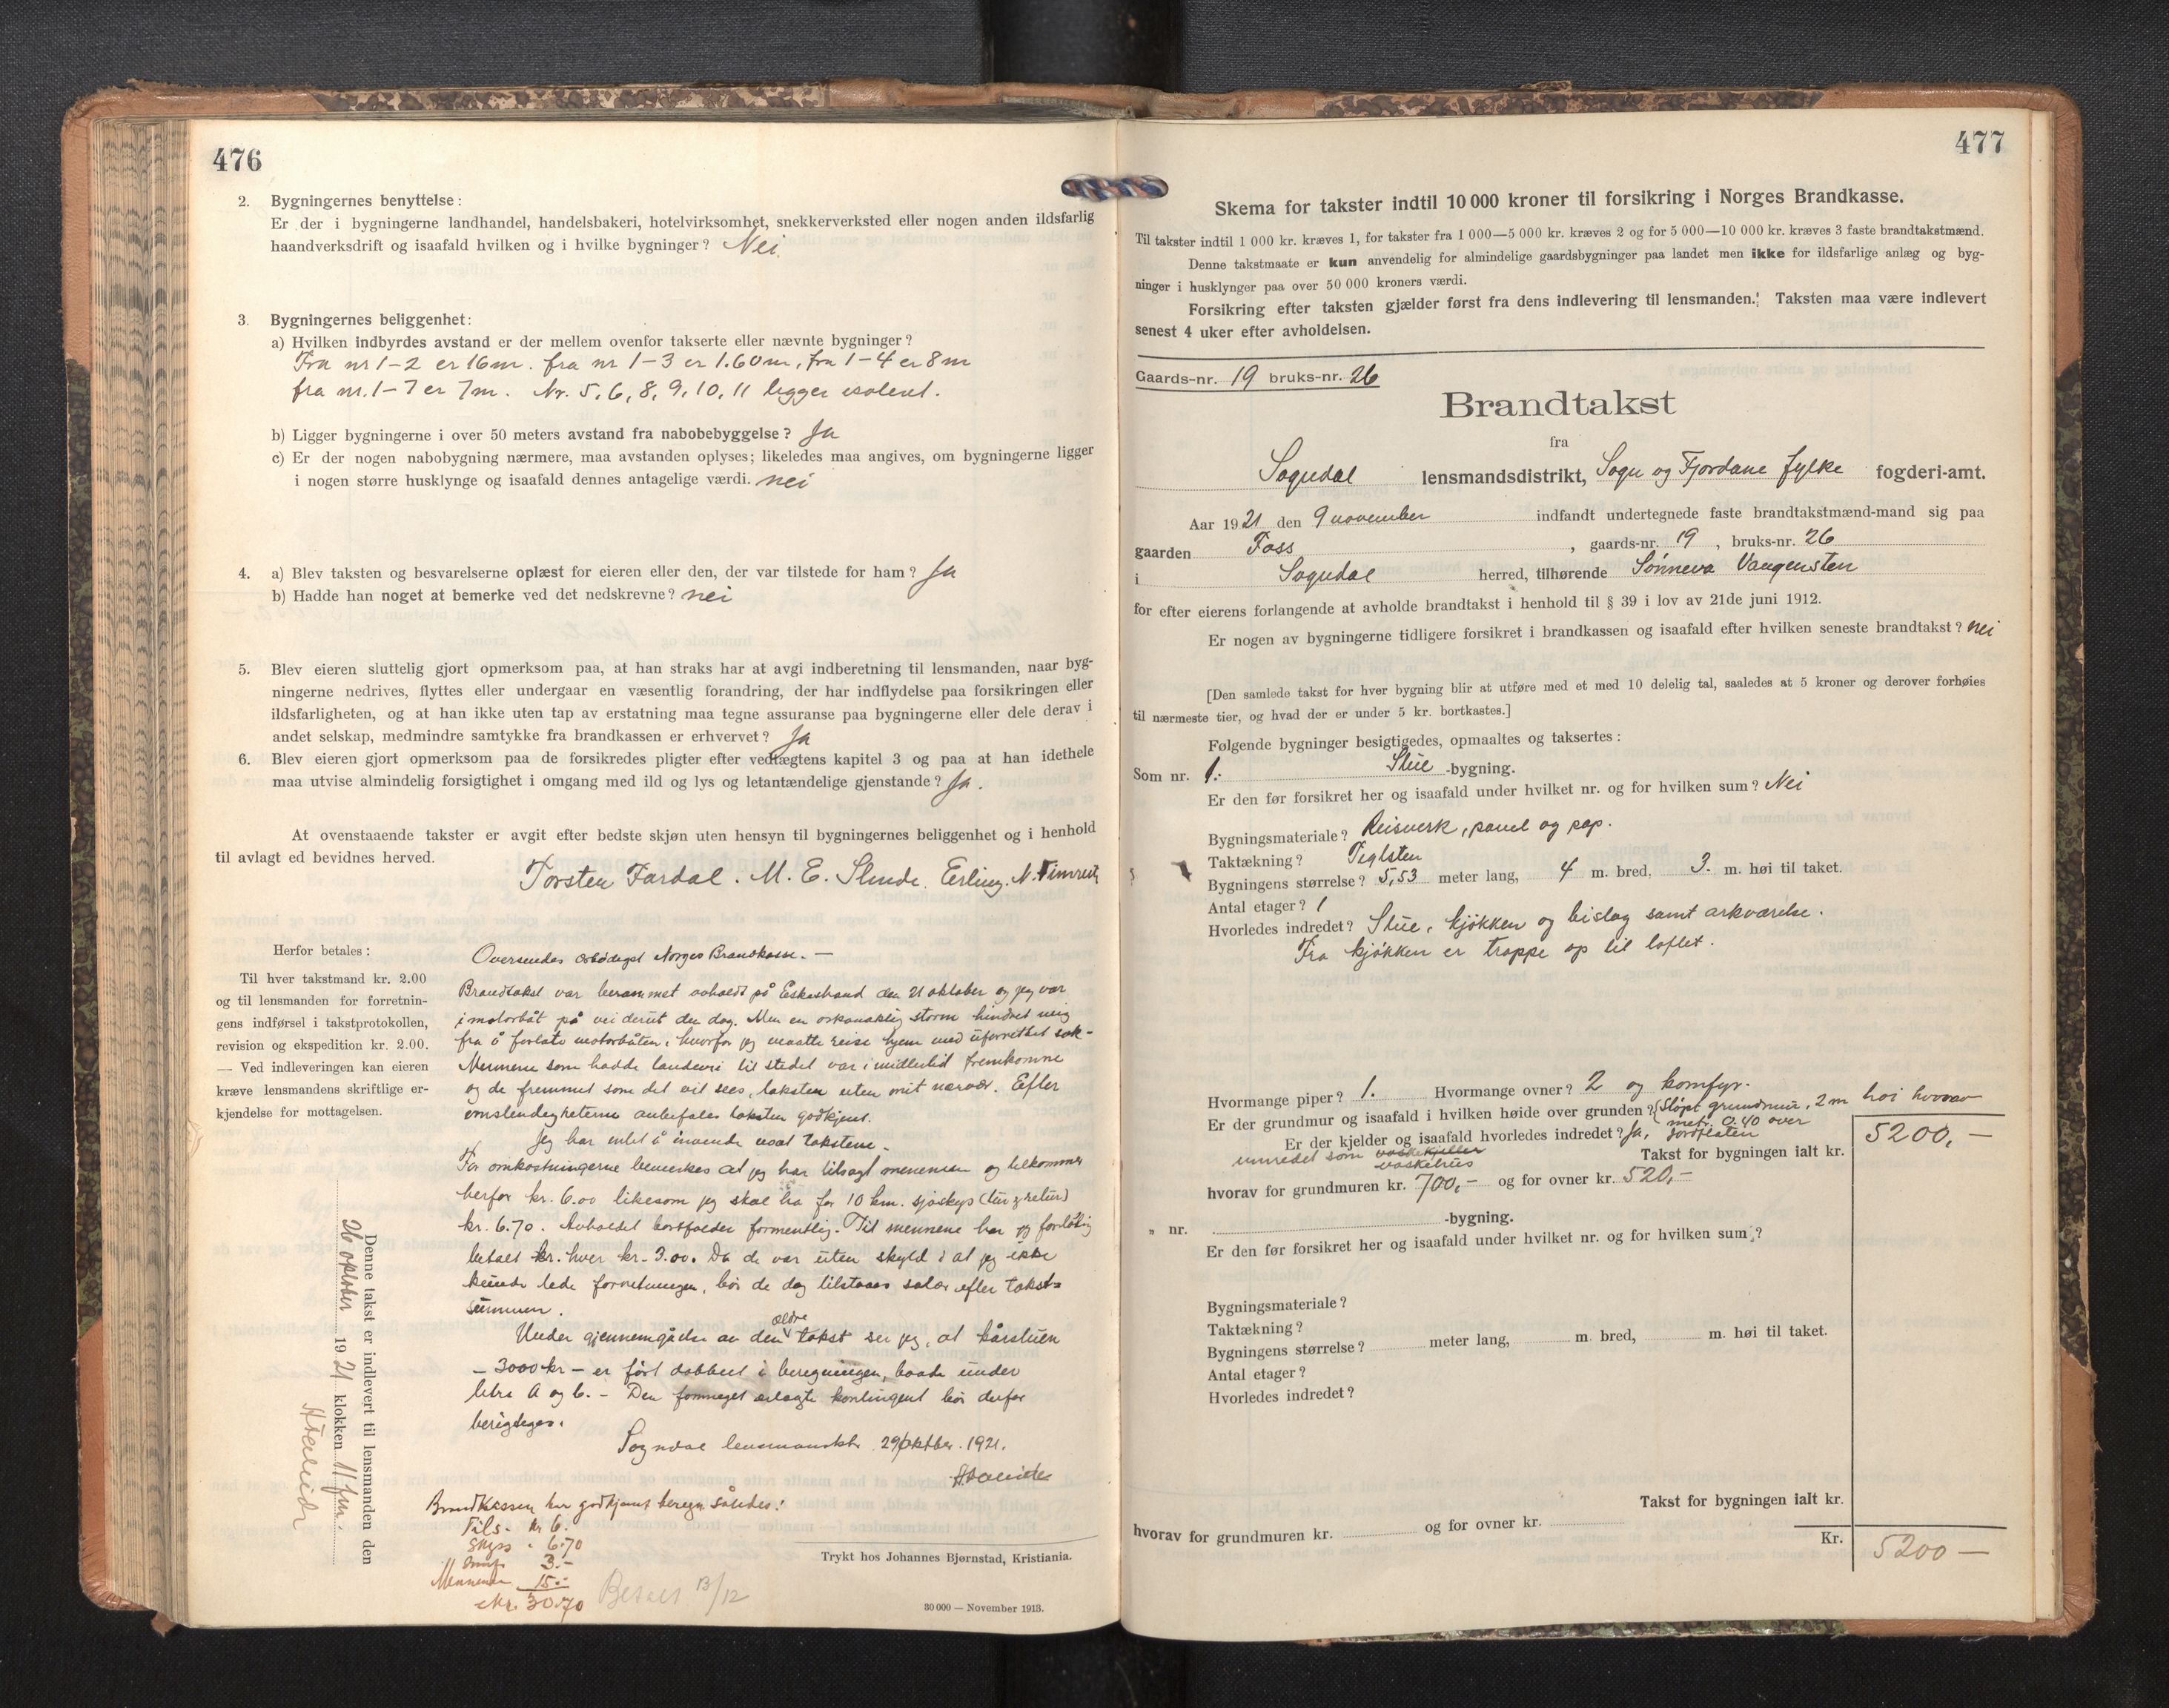 476
2. Bygningernes benyttelse:
Er der i bygningerne landhandel, handelsbakeri, hotelvirksomhet, snekkerverksted eller nogen anden ildsfarlig
haandverksdrift og isaafald hvilken og i hvilke bygninger? Nei.
3. Bygningernes beliggenhet:
a) Hvilken indbyrdes avstand er der mellem ovenfor takserte eller nævnte bygninger?
Fra nr 1-2 er 16m. fra nr 1-3 er 1.60m, fra 1-4 er 8m
fra nr. 1-7 er 7m. Nr. 5, 6, 8, 9, 10, 11 ligger isoleret.
b) Ligger bygningerne i over 50 meters avstand fra nabobebyggelse? Ja
c) Er der nogen nabobygning nærmere, maa avstanden oplyses; likeledes maa angives, om bygningerne ligger
i nogen større husklynge og isaafald dennes antagelige værdi. nei
4. a) Blev taksten og besvarelserne oplæst for eieren eller den, der var tilstede for ham? Ja
b) Hadde han noget at bemerke ved det nedskrevne? nei
5. Blev eieren sluttelig gjort opmerksom paa, at han straks har at avgi indberetning til lensmanden, naar byg-
ningerne nedrives, flyttes eller undergaar en væsentlig forandring, der har indflydelse paa forsikringen eller
ildsfarligheten, og at han ikke uten tap av erstatning maa tegne assuranse paa bygningerne eller dele derav i
andet selskap, medmindre samtykke fra brandkassen er erhvervet? Ja
6. Blev eieren gjort opmerksom paa de forsikredes pligter efter vedtægtens kapitel 3 og paa at han idethele
maa utvise almindelig forsigtighet i omgang med ild og lys og letantændelige gjenstande? Ja.
At ovenstaaende takster er avgit efter bedste skjøn uten hensyn til bygningernes beliggenhet og i henhold
til avlagt ed bevidnes herved.
Torsten Fardal. M. E. Slinde. Erling. N.
Herfor betales:
Til hver takstmand kr. 2.00
og til lensmanden for forretnin-
gens indførsel i takstprotokollen,
revision og ekspedition kr. 2.00.
— Ved indleveringen kan eieren
kræve lensmandens skriftlige er-
kjendelse for mottagelsen.
Oversendes ærbødigst Norges Brandkasse. —
Brandtakst var berammet avholdt på Eskestrand den 21 oktober og jeg var
i motorbåt på vei derut den dag. Men en orkanaktig storm hindret mig
fra å forlate motorbåten, hvorfor jeg maatte reise hjem med uforrettet sak -
Mennene som hadde landevei til stedet var imidlertid fremkomne
og de fremmet som det vil sees, taksten uten mit nærvær. Efter
omstendigheterne anbefales taksten godkjent.
Jeg har intet å invende mot takstene.
For omkostningerne bemerkes at jeg har tilsagt mennene og tilkommer
herfor kr. 6.00 likesom jeg skal ha for 10 km. sjøskyss (tur & retur)
kr. 6.70. Avholdet bortfalder formentlig. Til mennene har jeg foreløbig
betalt hver kr. 3.00. Da de var uten skyld i at jeg ikke
kunde lede forretningen, bør de dog tilstaaes salær efter takst-
summen.
Under gjennemgåelse av den ældre takst ser jeg, at kårstuen
- 3000 kr - er ført dobbelt i beregningen, baade under
litra A og b. - Den formeget erlagte kontingent bør derfor
berigtiges.
Sogndal lensmanskt. 29/oktber. 1921.
Brandkassen har godkjent beregn således:
Tils. kr 6.
Skyss " 6.70
3.-
Mennene 15.-
Kr. 30.70
Betalt 13/12
Denne takst er indlevert til lensmanden den
26 oktober 1921 klokken 11 fm.
Trykt hos Johannes Bjørnstad, Kristiania.
30 000 — November 1913.
477
Skema for takster indtil 10 000 kroner til forsikring i Norges Brandkasse.
Til takster indtil 1 000 kr. kræves 1, for takster fra 1 000—5 000 kr. kræves 2 og for 5 000—10 000 kr. kræves 3 faste brandtakstmænd.
Denne takstmaate er kun anvendelig for almindelige gaardsbygninger paa landet men ikke for ildsfarlige anlæg og byg-
ninger i husklynger paa over 50 000 kroners værdi.
Forsikring efter taksten gjælder først fra dens indlevering til lensmanden. Taksten maa være indlevert
senest 4 uker efter avholdelsen.
Gaards-nr. 19 bruks-nr. 26
Brandtakst
fra
Sogndal lensmandsdistrikt, Sogn og Fjordane fylke fogderi-amt.
Aar 1921 den 9 november indfandt undertegnede faste brandtakstmænd-mand sig paa
gaarden Foss, gaards-nr. 19, bruks-nr. 26
i Sogndal herred, tilhørende Sønneva Vangensten
for efter eierens forlangende at avholde brandtakst i henhold til § 39 i lov av 21de juni 1912.
Er nogen av bygningerne tidligere forsikret i brandkassen og isaafald efter hvilken seneste brandtakst? nei
[Den samlede takst for hver bygning blir at utføre med et med 10 delelig tal, saaledes at 5 kroner og derover forhøies
til nærmeste tier, og hvad der er under 5 kr. bortkastes.]
Følgende bygninger besigtigedes, opmaaltes og taksertes:
Som nr. 1. Stue -bygning.
Er den før forsikret her og isaafald under hvilket nr. og for hvilken sum? Nei
Bygningsmateriale? Reisverk, panel og pap.
Taktækning? Teglsten
Bygningens størrelse? 5,53 meter lang, 4 m. bred, 3. m. høi til taket.
Antal etager? 1
Hvorledes indredet? Stue, kjøkken og bislag samt arkværelse.
Fra kjøkken er trappe op til loftet.
Hvormange piper? 1. Hvormange ovner? 2 og komfyr.
Er der grundmur og isaafald i hvilken høide over grunden? Støpt grundmur, 2 m høi hvorav
metr. 0.40 over
Er der kjelder og isaafald hvorledes indredet? Ja, jordflaten
innredet som vaskekjeller
vaskehus
Takst for bygningen ialt kr. 5200,—
hvorav for grundmuren kr. 700,— og for ovner kr. 520,—
„ nr. -bygning.
Er den før forsikret her og isaafald under hvilket nr. og for hvilken sum?
Bygningsmateriale?
Taktækning?
Bygningens størrelse? meter lang, m. bred, m. høi til taket.
Antal etager?
Hvorledes indredet?
Takst for bygningen ialt kr.
hvorav for grundmuren kr. og for ovner kr.
Kr. 5200 —